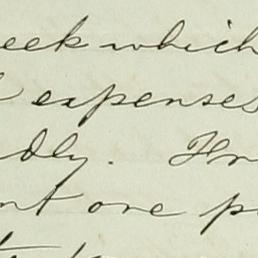 eek which
expenses
dly. Fr
nt one p